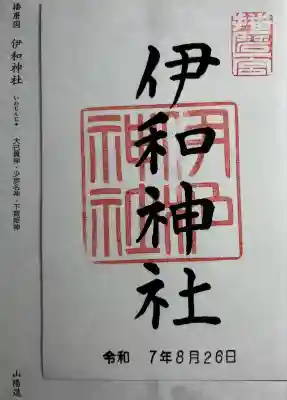 播磨国一宮
伊和神社
伊和神社
令和 7年8月26日
播磨国 伊和神社 いわじんじゃ 大己貴神・少彦名神・下照姫神
山陽道